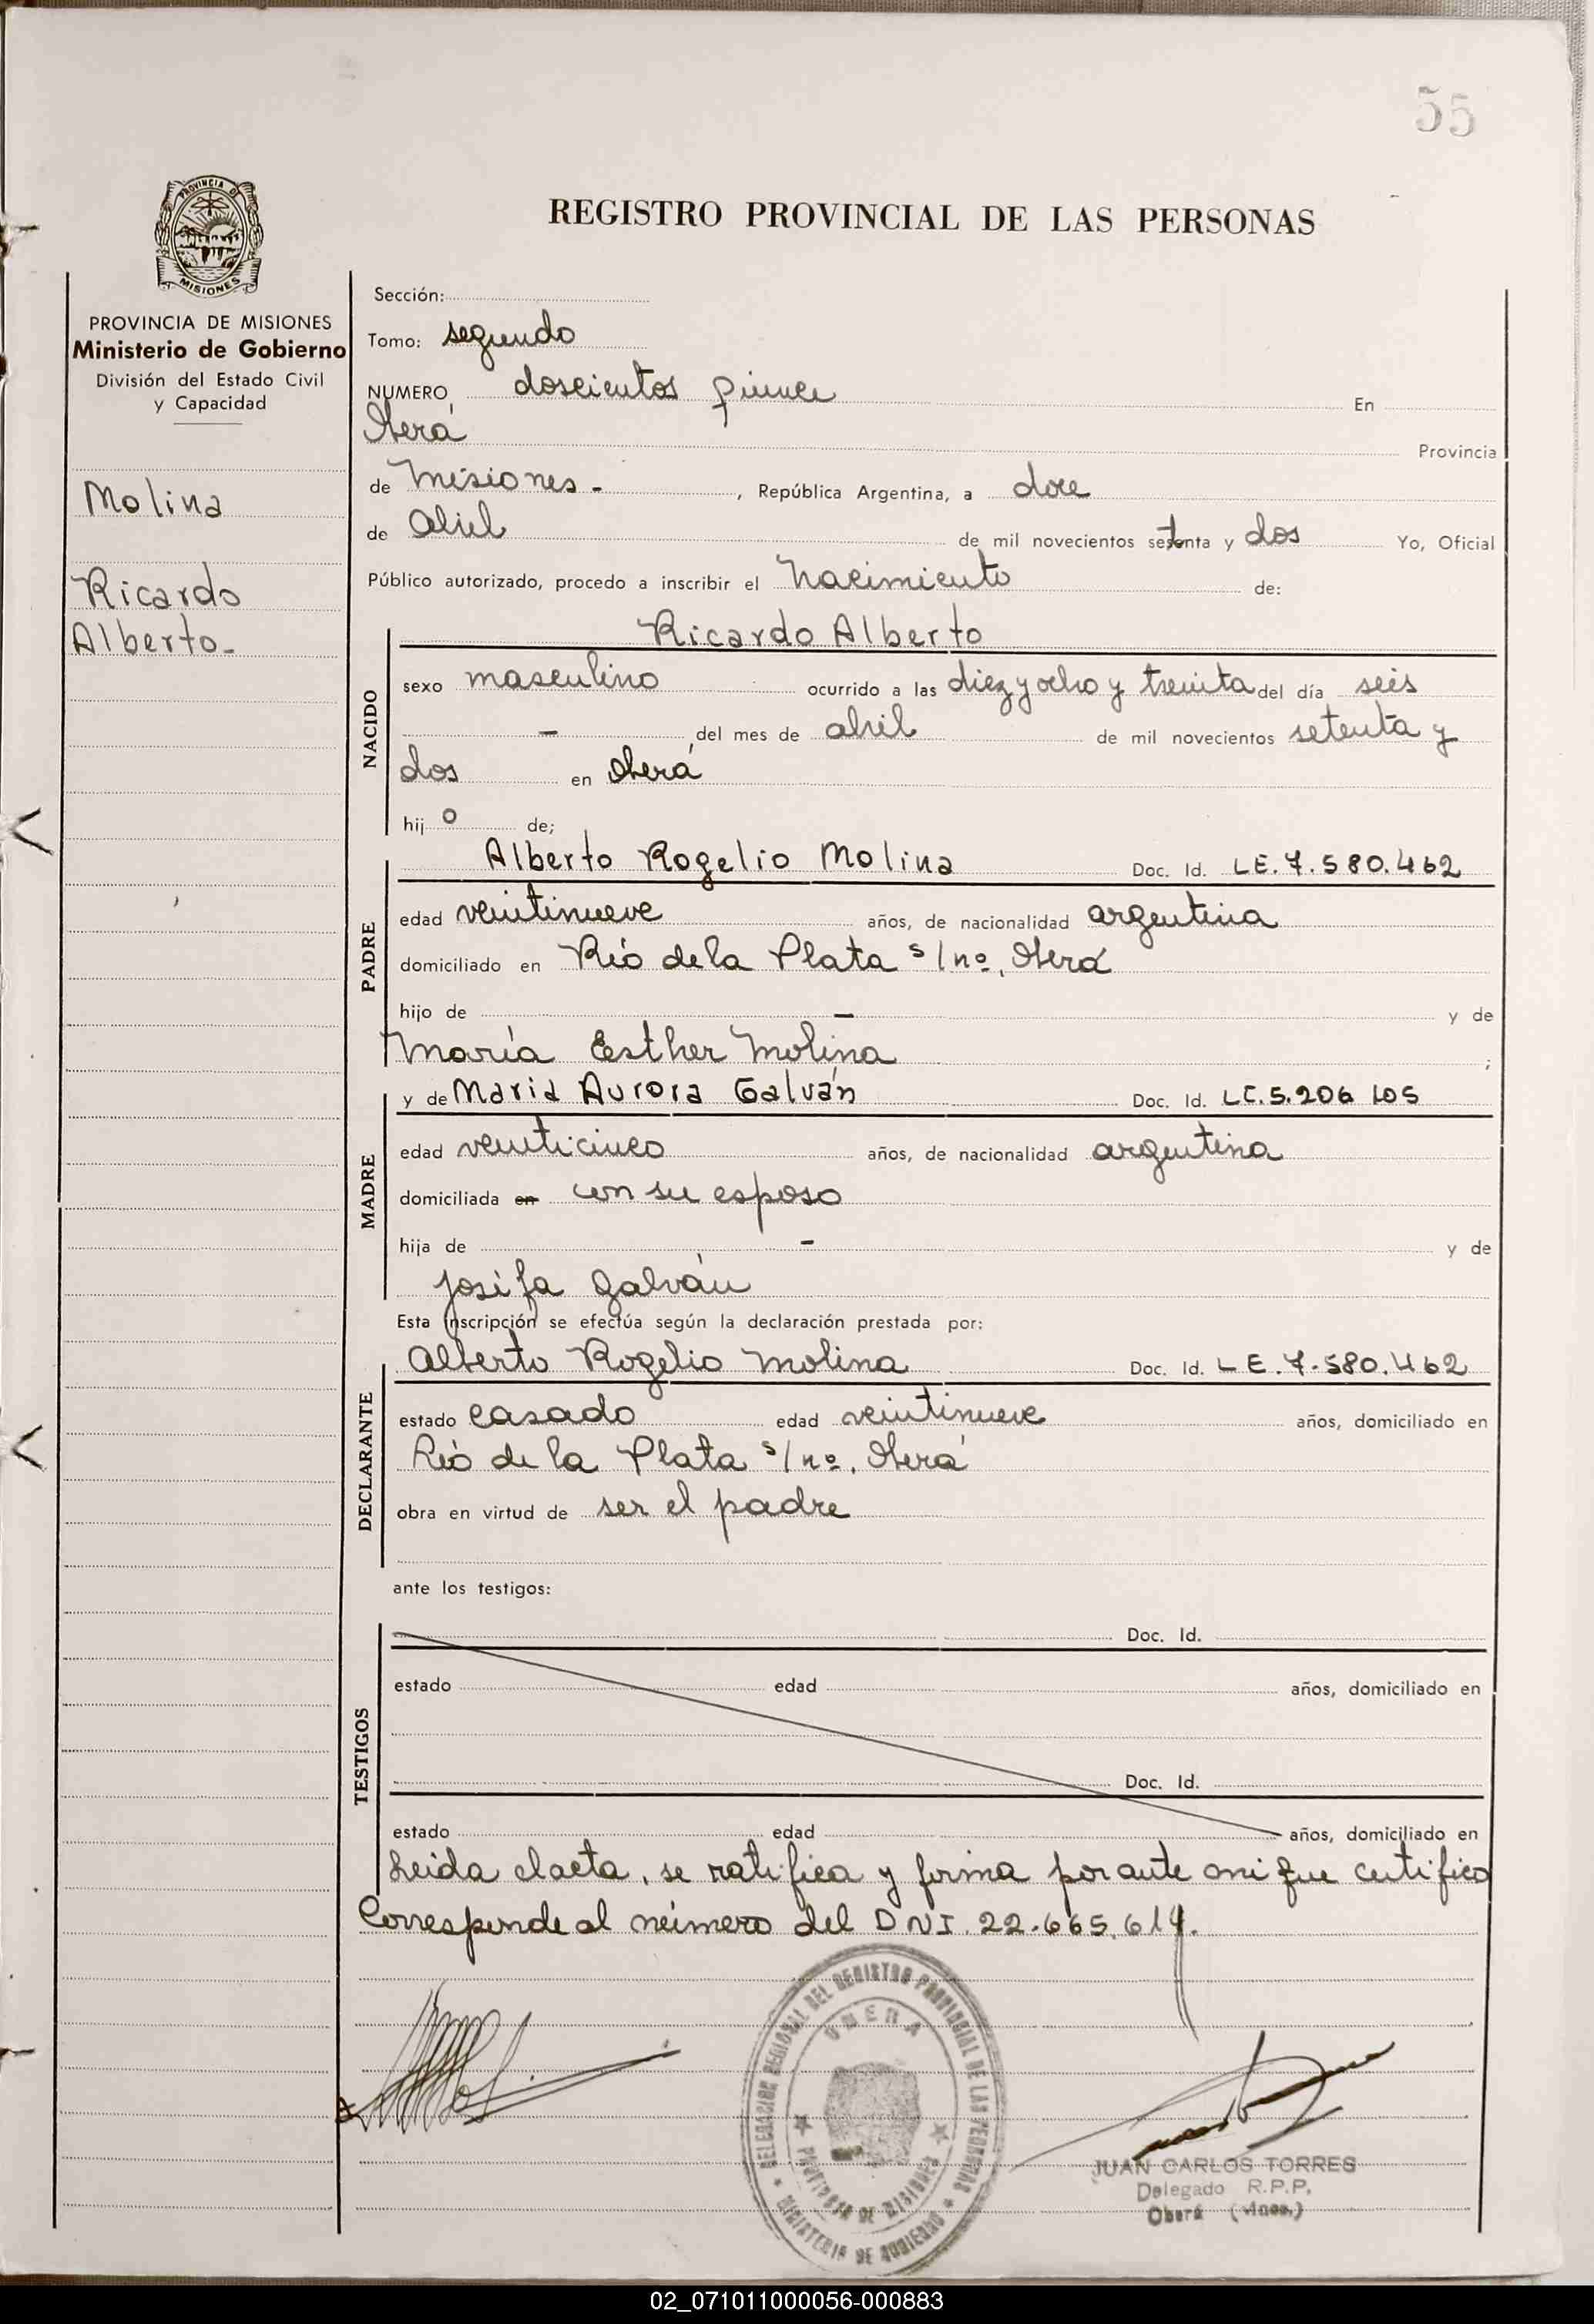 55
PROVINCIA DE MISIONES
REGISTRO PROVINCIAL DE LAS PERSONAS
PROVINCIA DE MISIONES
Ministerio de Gobierno
División del Estado Civil
y Capacidad
Molina
Ricardo
Alberto-
Sección:
Tomo: segundo
NUMERO doscientos quince En
Oberá Provincia
de Misiones - , República Argentina, a doce
de abril de mil novecientos setenta y dos Yo, Oficial
Público autorizado, procedo a inscribir el nacimiento de:
Ricardo Alberto
NACIDO
sexo masculino ocurrido a las diez y ocho y treinta del día seis
- del mes de abril de mil novecientos setenta y
dos en Oberá
hij o de;
Alberto Rogelio Molina Doc. Id. LE. 7.580.462
PADRE
edad veintinueve años, de nacionalidad argentina
domiciliado en Río de la Plata s/nº, Oberá
hijo de - y de
María Esther Molina ;
y de Maria Aurora Galván Doc. Id. LC. 5.206 105
MADRE
edad veinticinco años, de nacionalidad argentina
domiciliada en con su esposo
hija de - y de
Josefa Galván
Esta inscripción se efectúa según la declaración prestada por:
Alberto Rogelio Molina Doc. Id. LE. 7.580.462
DECLARANTE
estado casado edad veintinueve años, domiciliado en
Río de la Plata s/nº, Oberá
obra en virtud de ser el padre
ante los testigos:
Doc. Id.
TESTIGOS
estado edad años, domiciliado en
Doc. Id.
estado edad años, domiciliado en
Leida el acta, se ratifica y firma por ante mi que certifico
Corresponde al número del DNI. 22.665.614.
DELEGACION REGIONAL DEL REGISTRO PROVINCIAL DE LAS PERSONAS
OBERA
PROVINCIA DE MISIONES
MINISTERIO DE GOBIERNO
JUAN CARLOS TORRES
Delegado R.P.P.
Oberá (Mnes.)
02_071011000056-000883